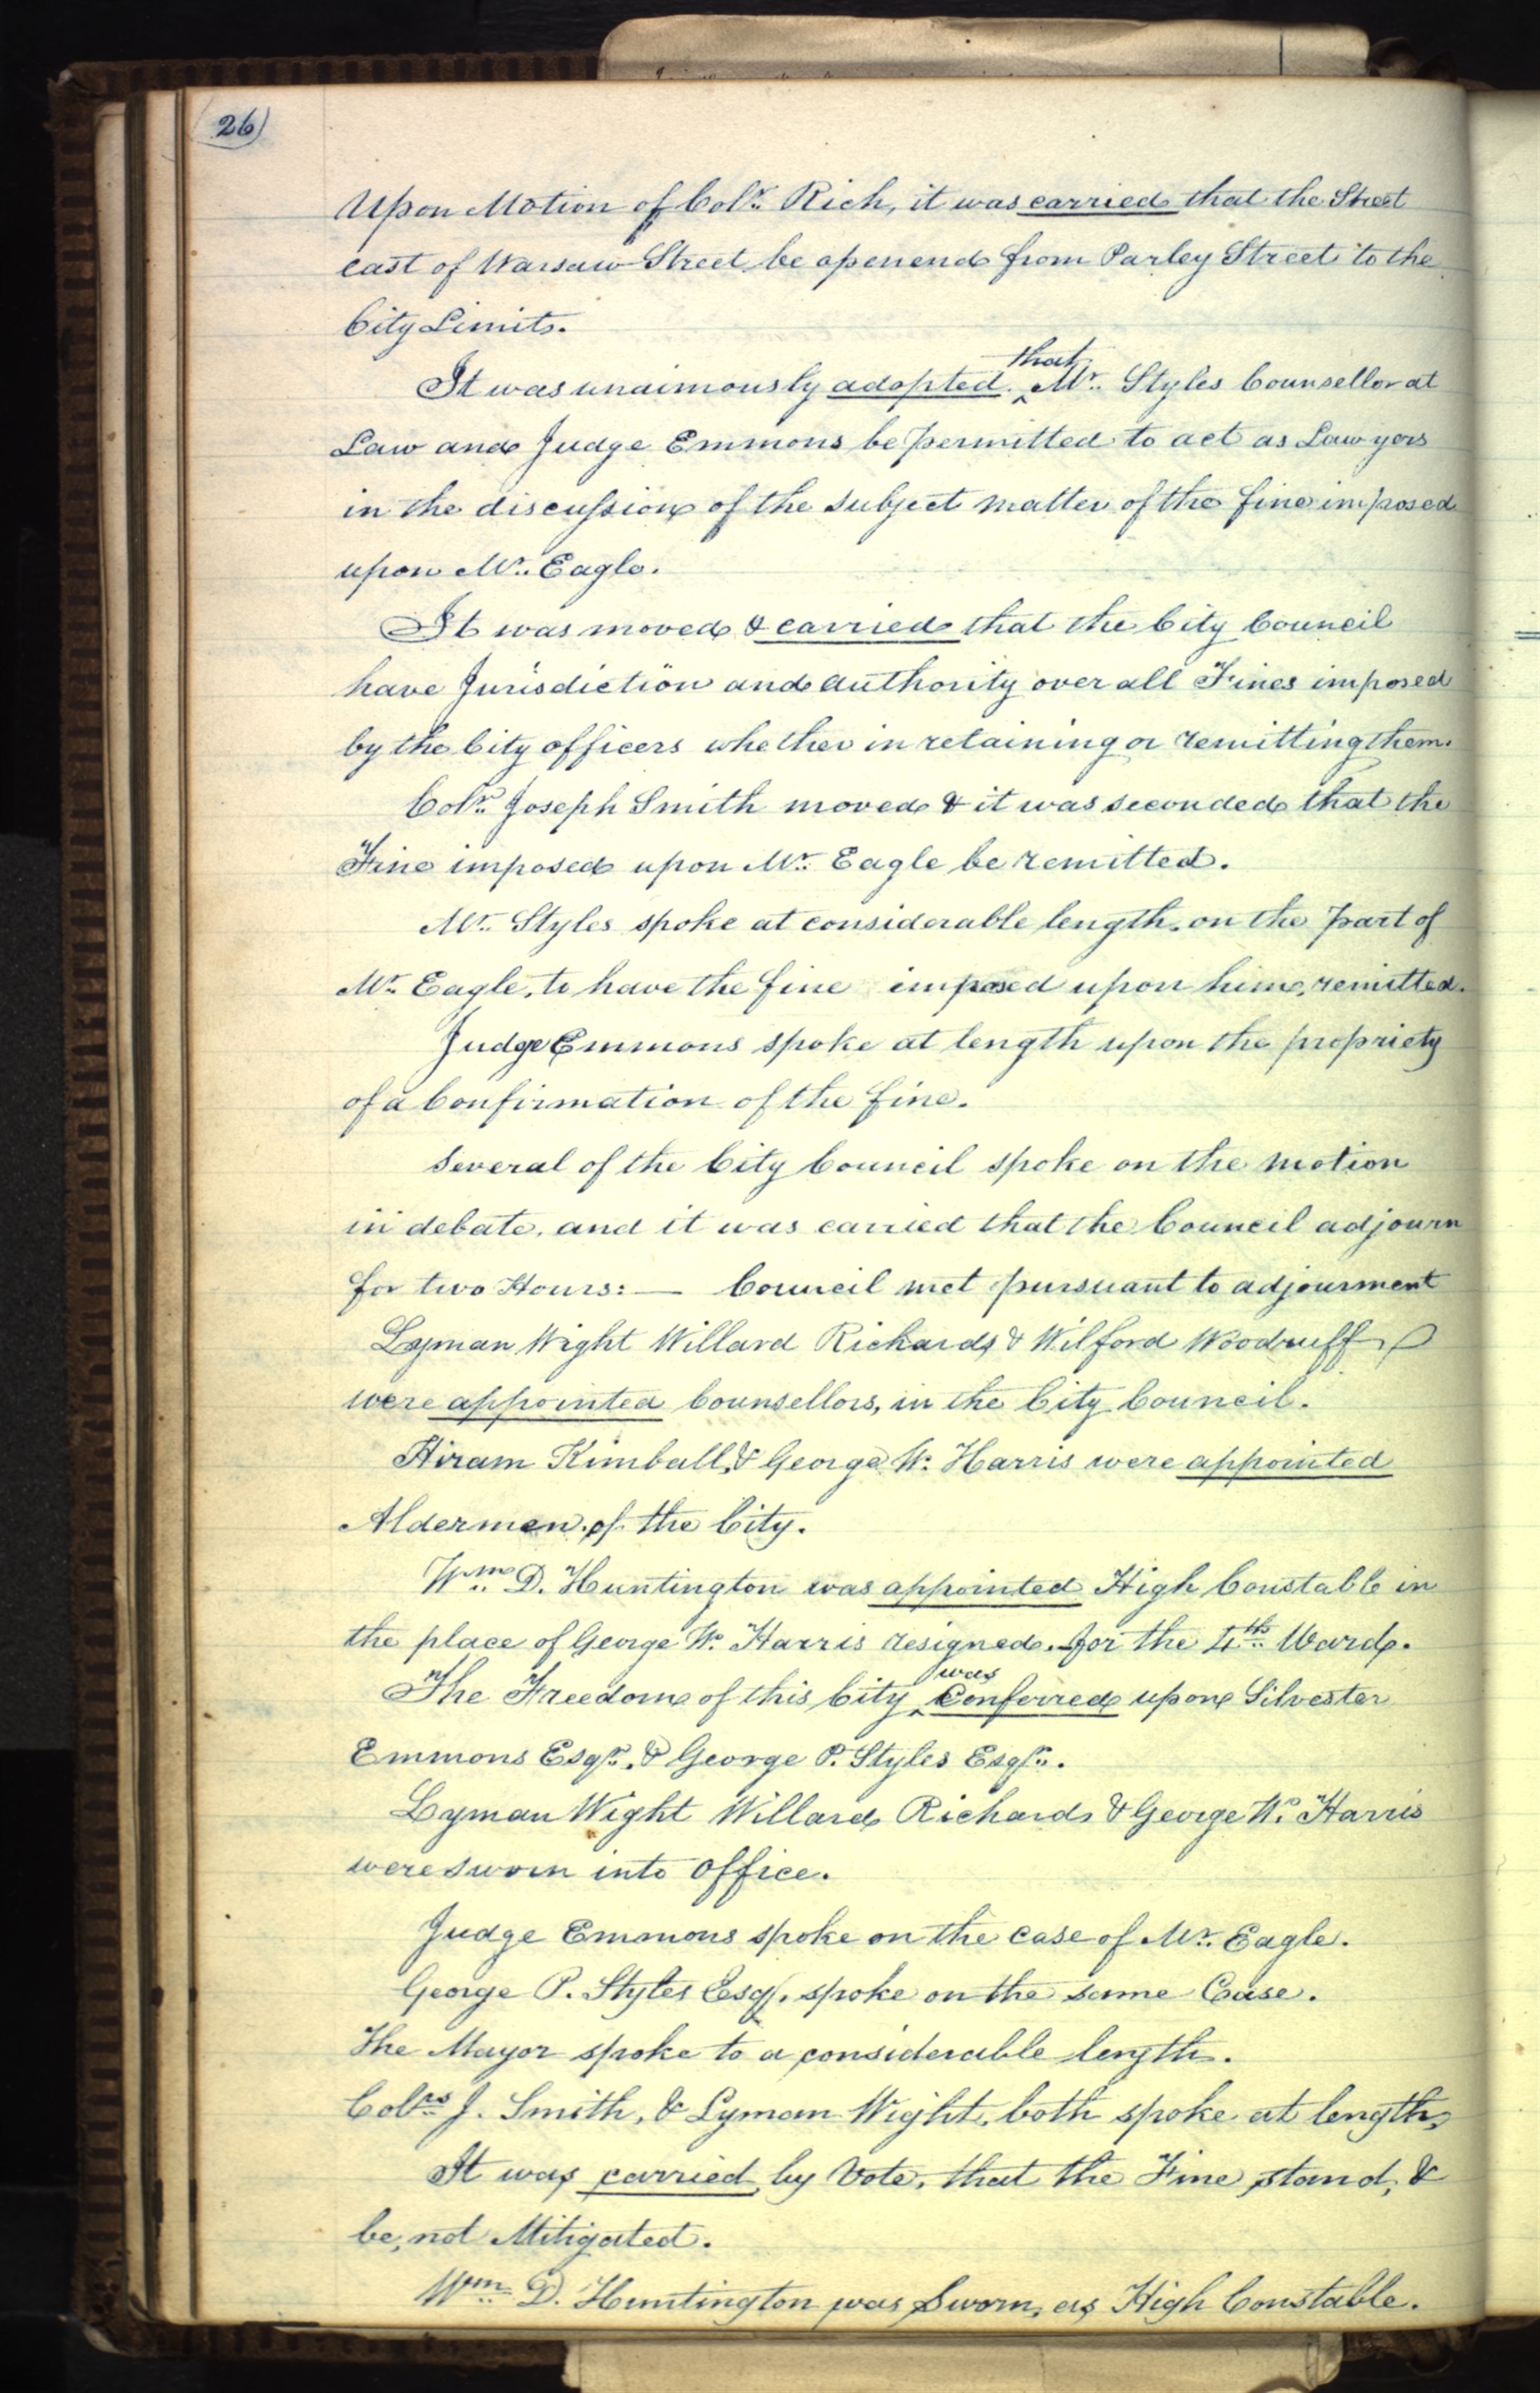 26)
Upon Motion of Colr. Rich, it was carried that the Street
east of Warsaw Street be openend from Parley Street to the
City Limits.
It was unaimously adopted. that Mr. Styles Counsellor at
Law and Judge Emmons be permitted to act as Lawyers
in the discussion of the subject matter of the fine imposed
upon Mr. Eagle.
It was moved & carried that the City Council
have Jurisdiction and authority over all Fines imposed
by the City officers whether in retaining or remitting them.
Colr. Joseph Smith moved & it was seconded that the
Fine imposed upon Mr. Eagle be remitted.
Mr. Styles spoke at considerable length, on the part of
Mr. Eagle, to have the fine imposed upon him, remitted.
Judge Emmons spoke at length upon the propriety
of a Confirmation of the fine.
Several of the City Council spoke on the motion
in debate, and it was carried that the Council adjourn
for two Hours:— Council met pursuant to adjourment
Lyman Wight Willard Richards & Wilford Woodruff
were appointed Counsellors, in the City Council.
Hiram Kimball, & George W. Harris were appointed
Aldermen of the City.
Wm. D. Huntington was appointed High Constable in
the place of George W. Harris resigned, for the 4th. Ward.
The Freedom of this City was Conferred upon Silvester
Emmons Esqr. & George P. Styles Esqr.
Lyman Wight Willard Richards & George W. Harris
were sworn into office.
Judge Emmons spoke on the case of Mr. Eagle.
George P. Styles Esq. spoke on the same Case.
The Mayor spoke to a considerable length.
Colrs. J. Smith, & Lyman Wight, both spoke at length,
It was carried, by Vote, that the Fine stand, &
be, not Mitigated.
Wm. D. Huntington was Sworn, as High Constable.